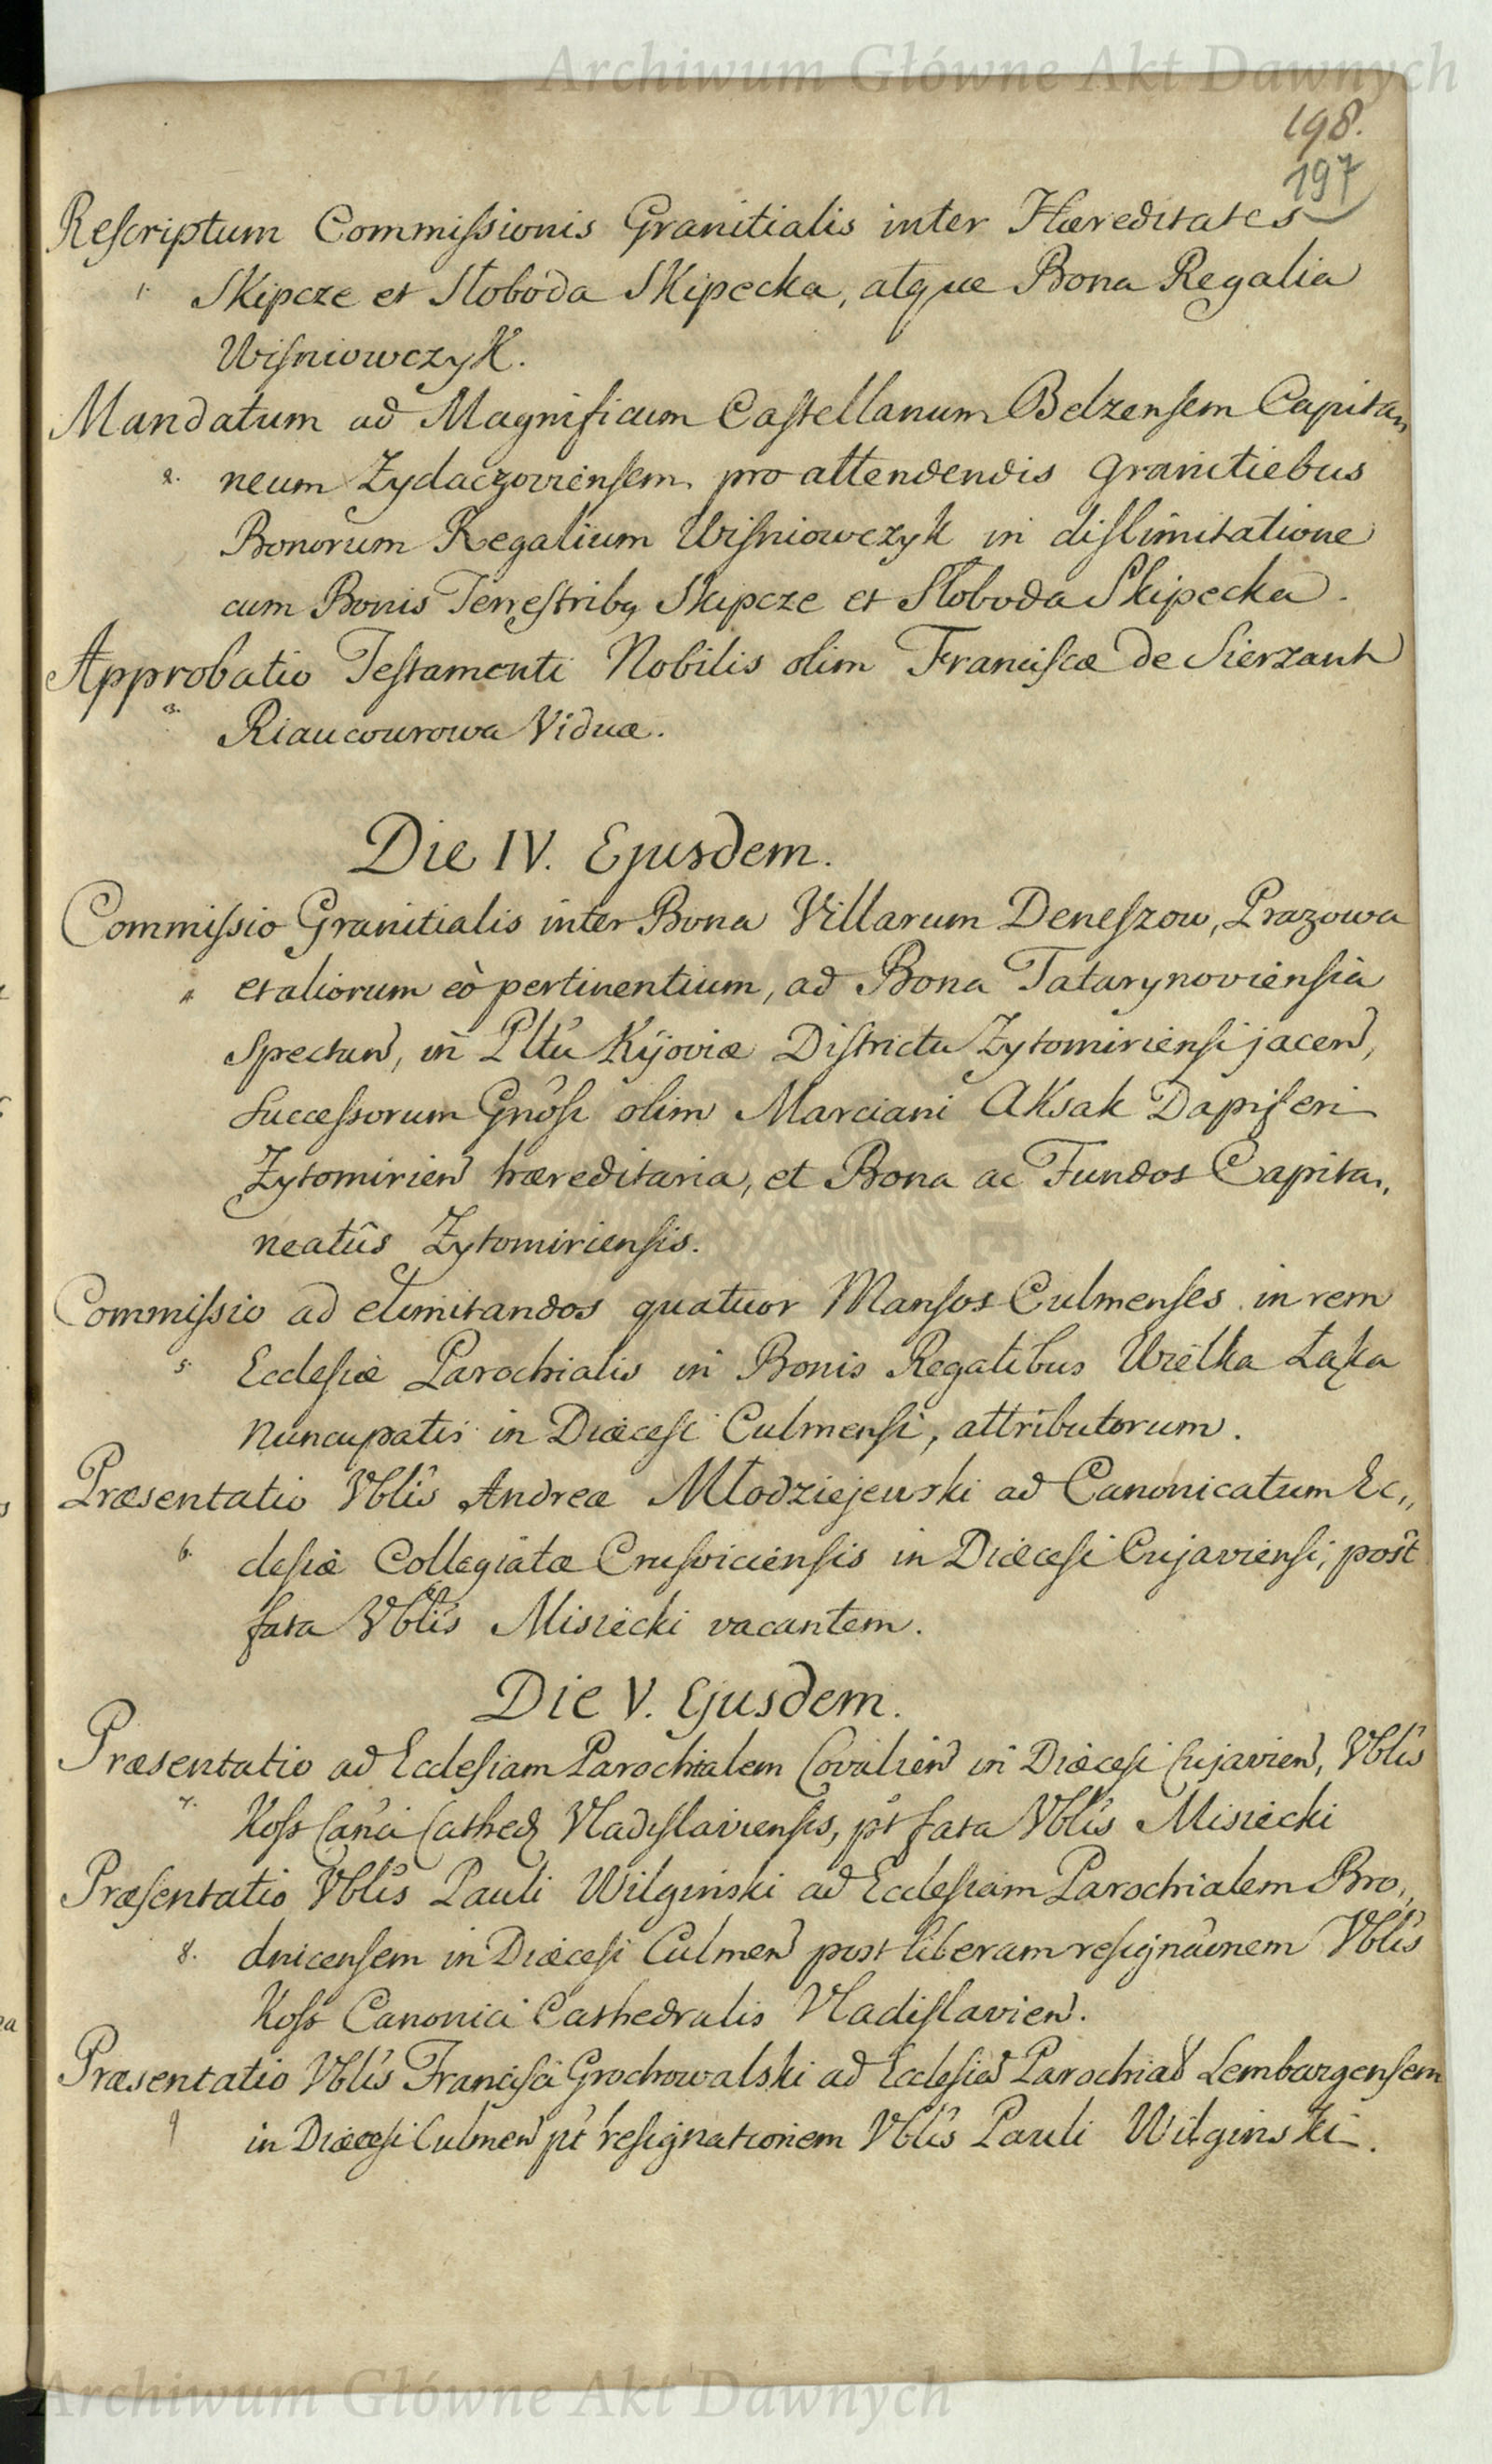 Archiwum Główne Akt Dawnych
198.
197
Reſcriptum Commiſsionis Granitialis inter Hæreditates
1. Skipcze et Słoboda Skipecka, atque Bona Regalia
Wiſniowczyk.
Mandatum ad Magnificum Caſtellanum Belzenſem Capita„
2. neum Zydaczovienſem, pro attendendis Granitiebus
Bonorum Regalium Wiſniowczyk in diſlimitatione
cum Bonis Terreſtribq Skipcze et Słoboda Skipecka.
Approbatio Teſtamenti Nobilis olim Franciſcæ de Sierzant
3. Riaucourowa Viduæ.
Die IV. Ejusdem.
Commiſsio Granitialis inter Bona Villarum Deneſzow, Prazowa
4. et aliorum eò pertinentium, ad Bona Tatarynovienſia
Spectan, in Pltu Kijoviæ Diſtrictu Zytomirienſi jacen,
Succeſsorum Gnoſi olim Marciani Akſak Dapiferi
Zytomirien hæreditaria, et Bona ac Fundos Capita„
neatûs Zytomirienſis.
Commiſsio ad elimitandos quatuor Manſos Culmenſes in rem
5. Eccleſiæ Parochialis in Bonis Regalibus Wielka Łąka
nuncupatis in Diæceſi Culmenſi, attributorum.
Præsentatio Vblis Andreæ Młodziejewski ad Canonicatum Ec„
6. cleſiæ Collegiatæ Cruſvicienſis in Diæceſi Cujavienſi, poſt
fata Vblis Misiecki vacantem.
Die V. Ejusdem.
Præsentatio ad Eccleſiam Parochialem Covalien in Diæceſi Cujavien, Vblis
7. Koſs Canci Cathed Vladiſlavienſis, pt fata Vblis Misiecki
Præſentatio Vblis Pauli Wilginski ad Eccleſiam Parochialem Bro„
8. dnicenſem in Diæceſi Culmen post liberam reſignãonem Vblis
Koſs Canonici Cathedralis Vladiſlavien.
Præsentatio Vblis Franciſci Grochowalski ad Eccleſia Parochial Lembargenſem
9 in Diæceſi Culmen pt reſignationem Vblis Pauli Wilginski.
Archiwum Główne Akt Dawnych